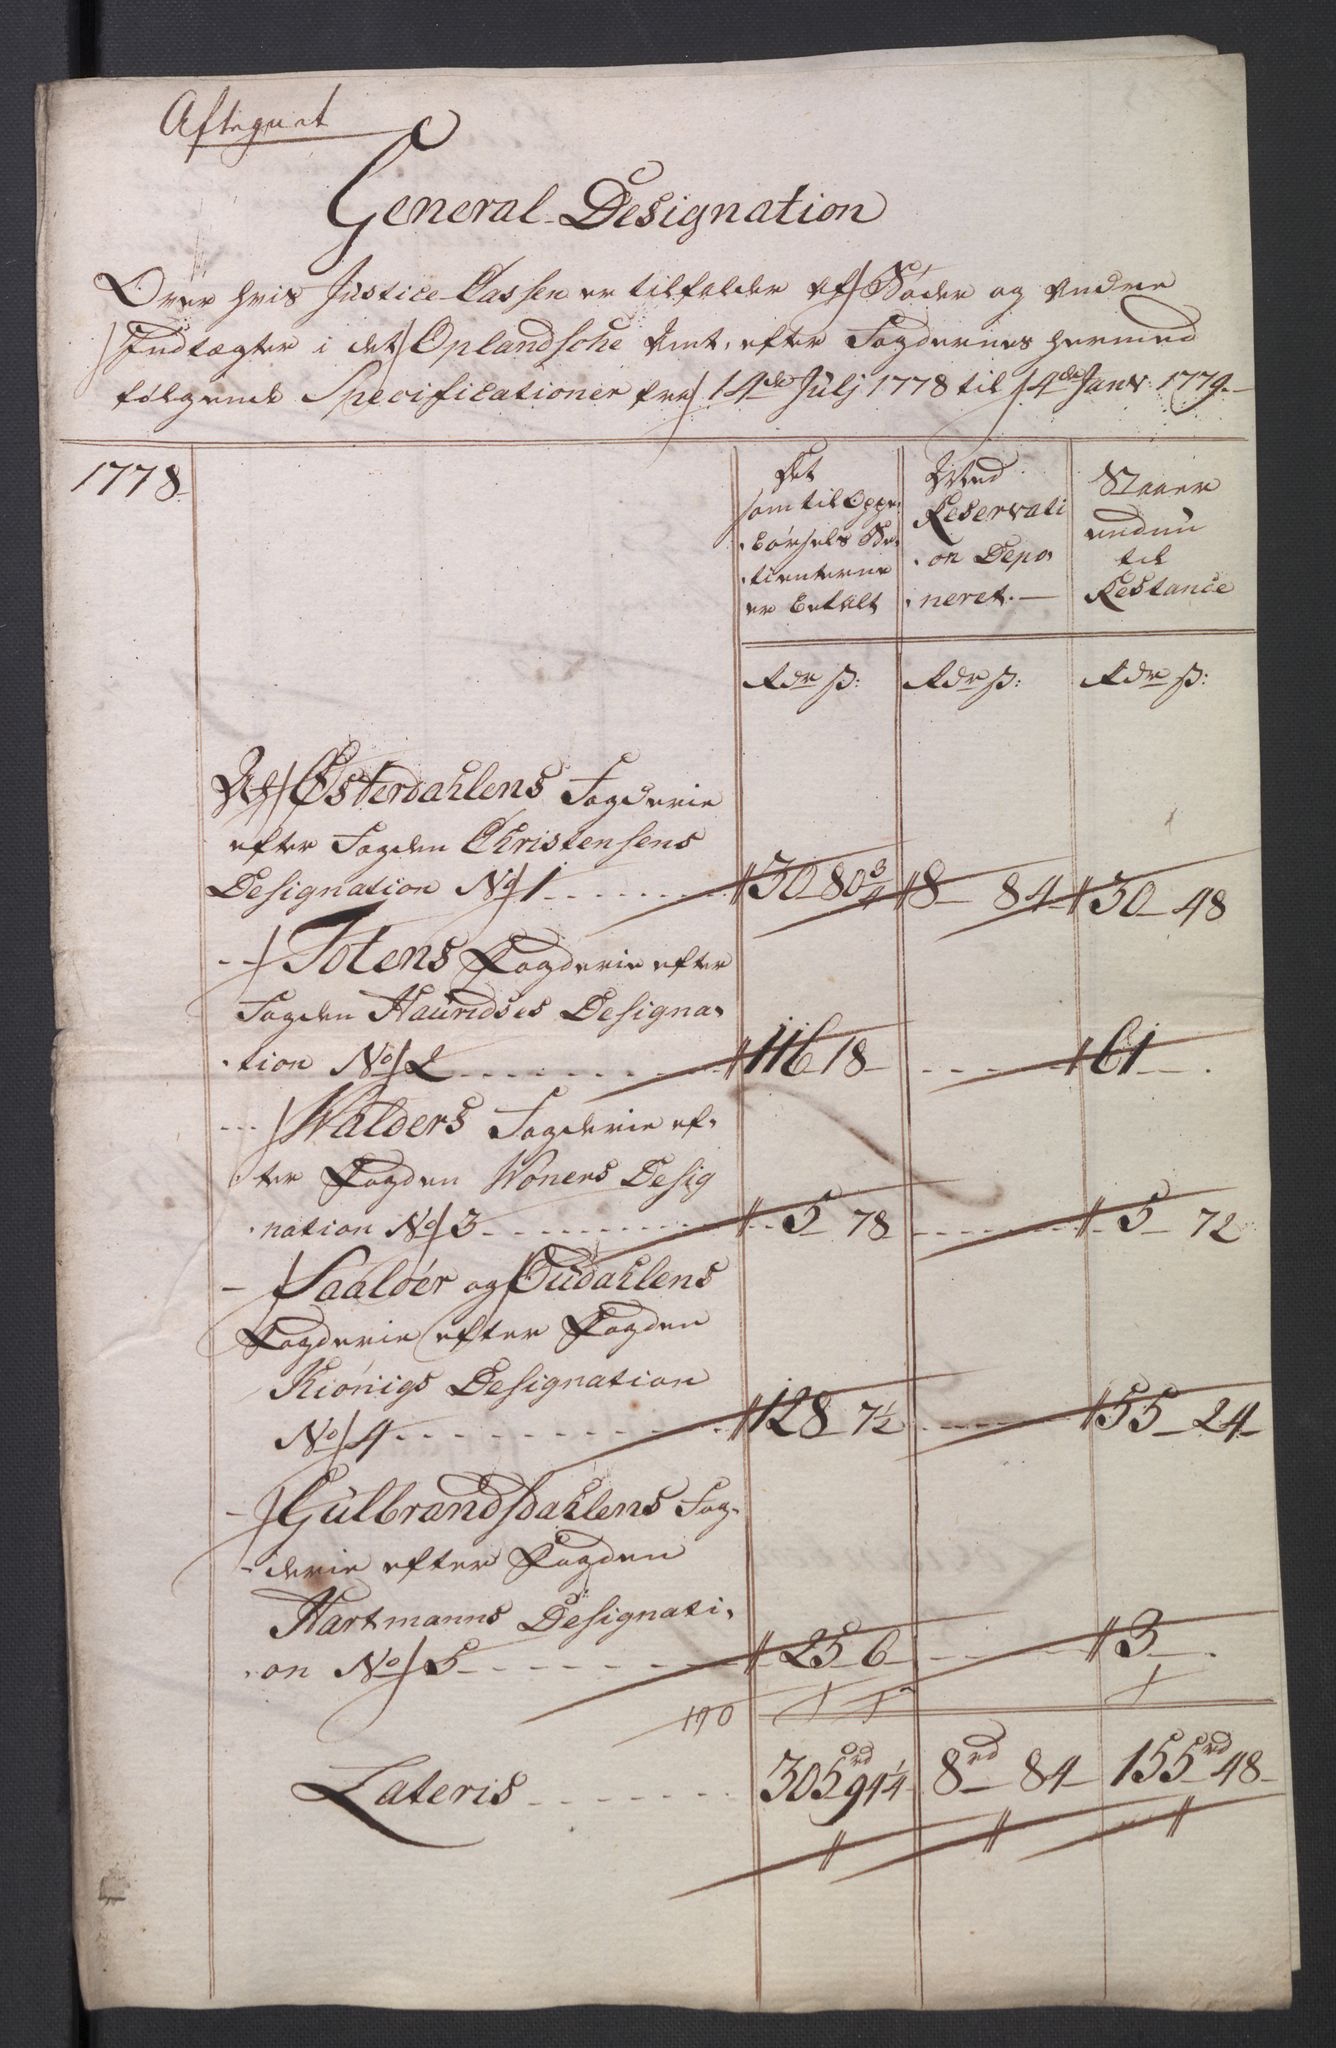 Aftegnet
General-Designation
Over hvis Justice-Cassen er tilfalden af Bøder og Andre
Indtægter i det Oplandsche Amt, efter Fogdernes hermed
følgende Specificationer fra 14de Julj 1778 til 14de Janv: 1779.
1778
Det
som til Oppe-
børsels Be-
tienterne
er betalt
Med
Reservati
on Depo
neret.
Staaer
endnu
til
Restance
Rdr ß: Rdr ß: Rdr ß:
Af Østerdahlens Fogderie
efter Fogden Christensens
Designation No 1 30 80 3/4 8 84 30 48
Totens Fogderie efter
Fogden Designa-
tion No 2 116 18 61
Walders Fogderie ef-
ter Fogden Woners Desig
nation No 3 5 78 5 72
Saaløer og Oudahlens
Fogderie efter Fogden
Kiønigs Designation
No 4 128 7 1/2 55 24
Gulbrandsdahlens Fog-
derie efter Fogden
Hartmanns Designati-
on No 5 25 6 3
190
Lateris 305 rd 94 1/4 8 rd 84 155 rd 48